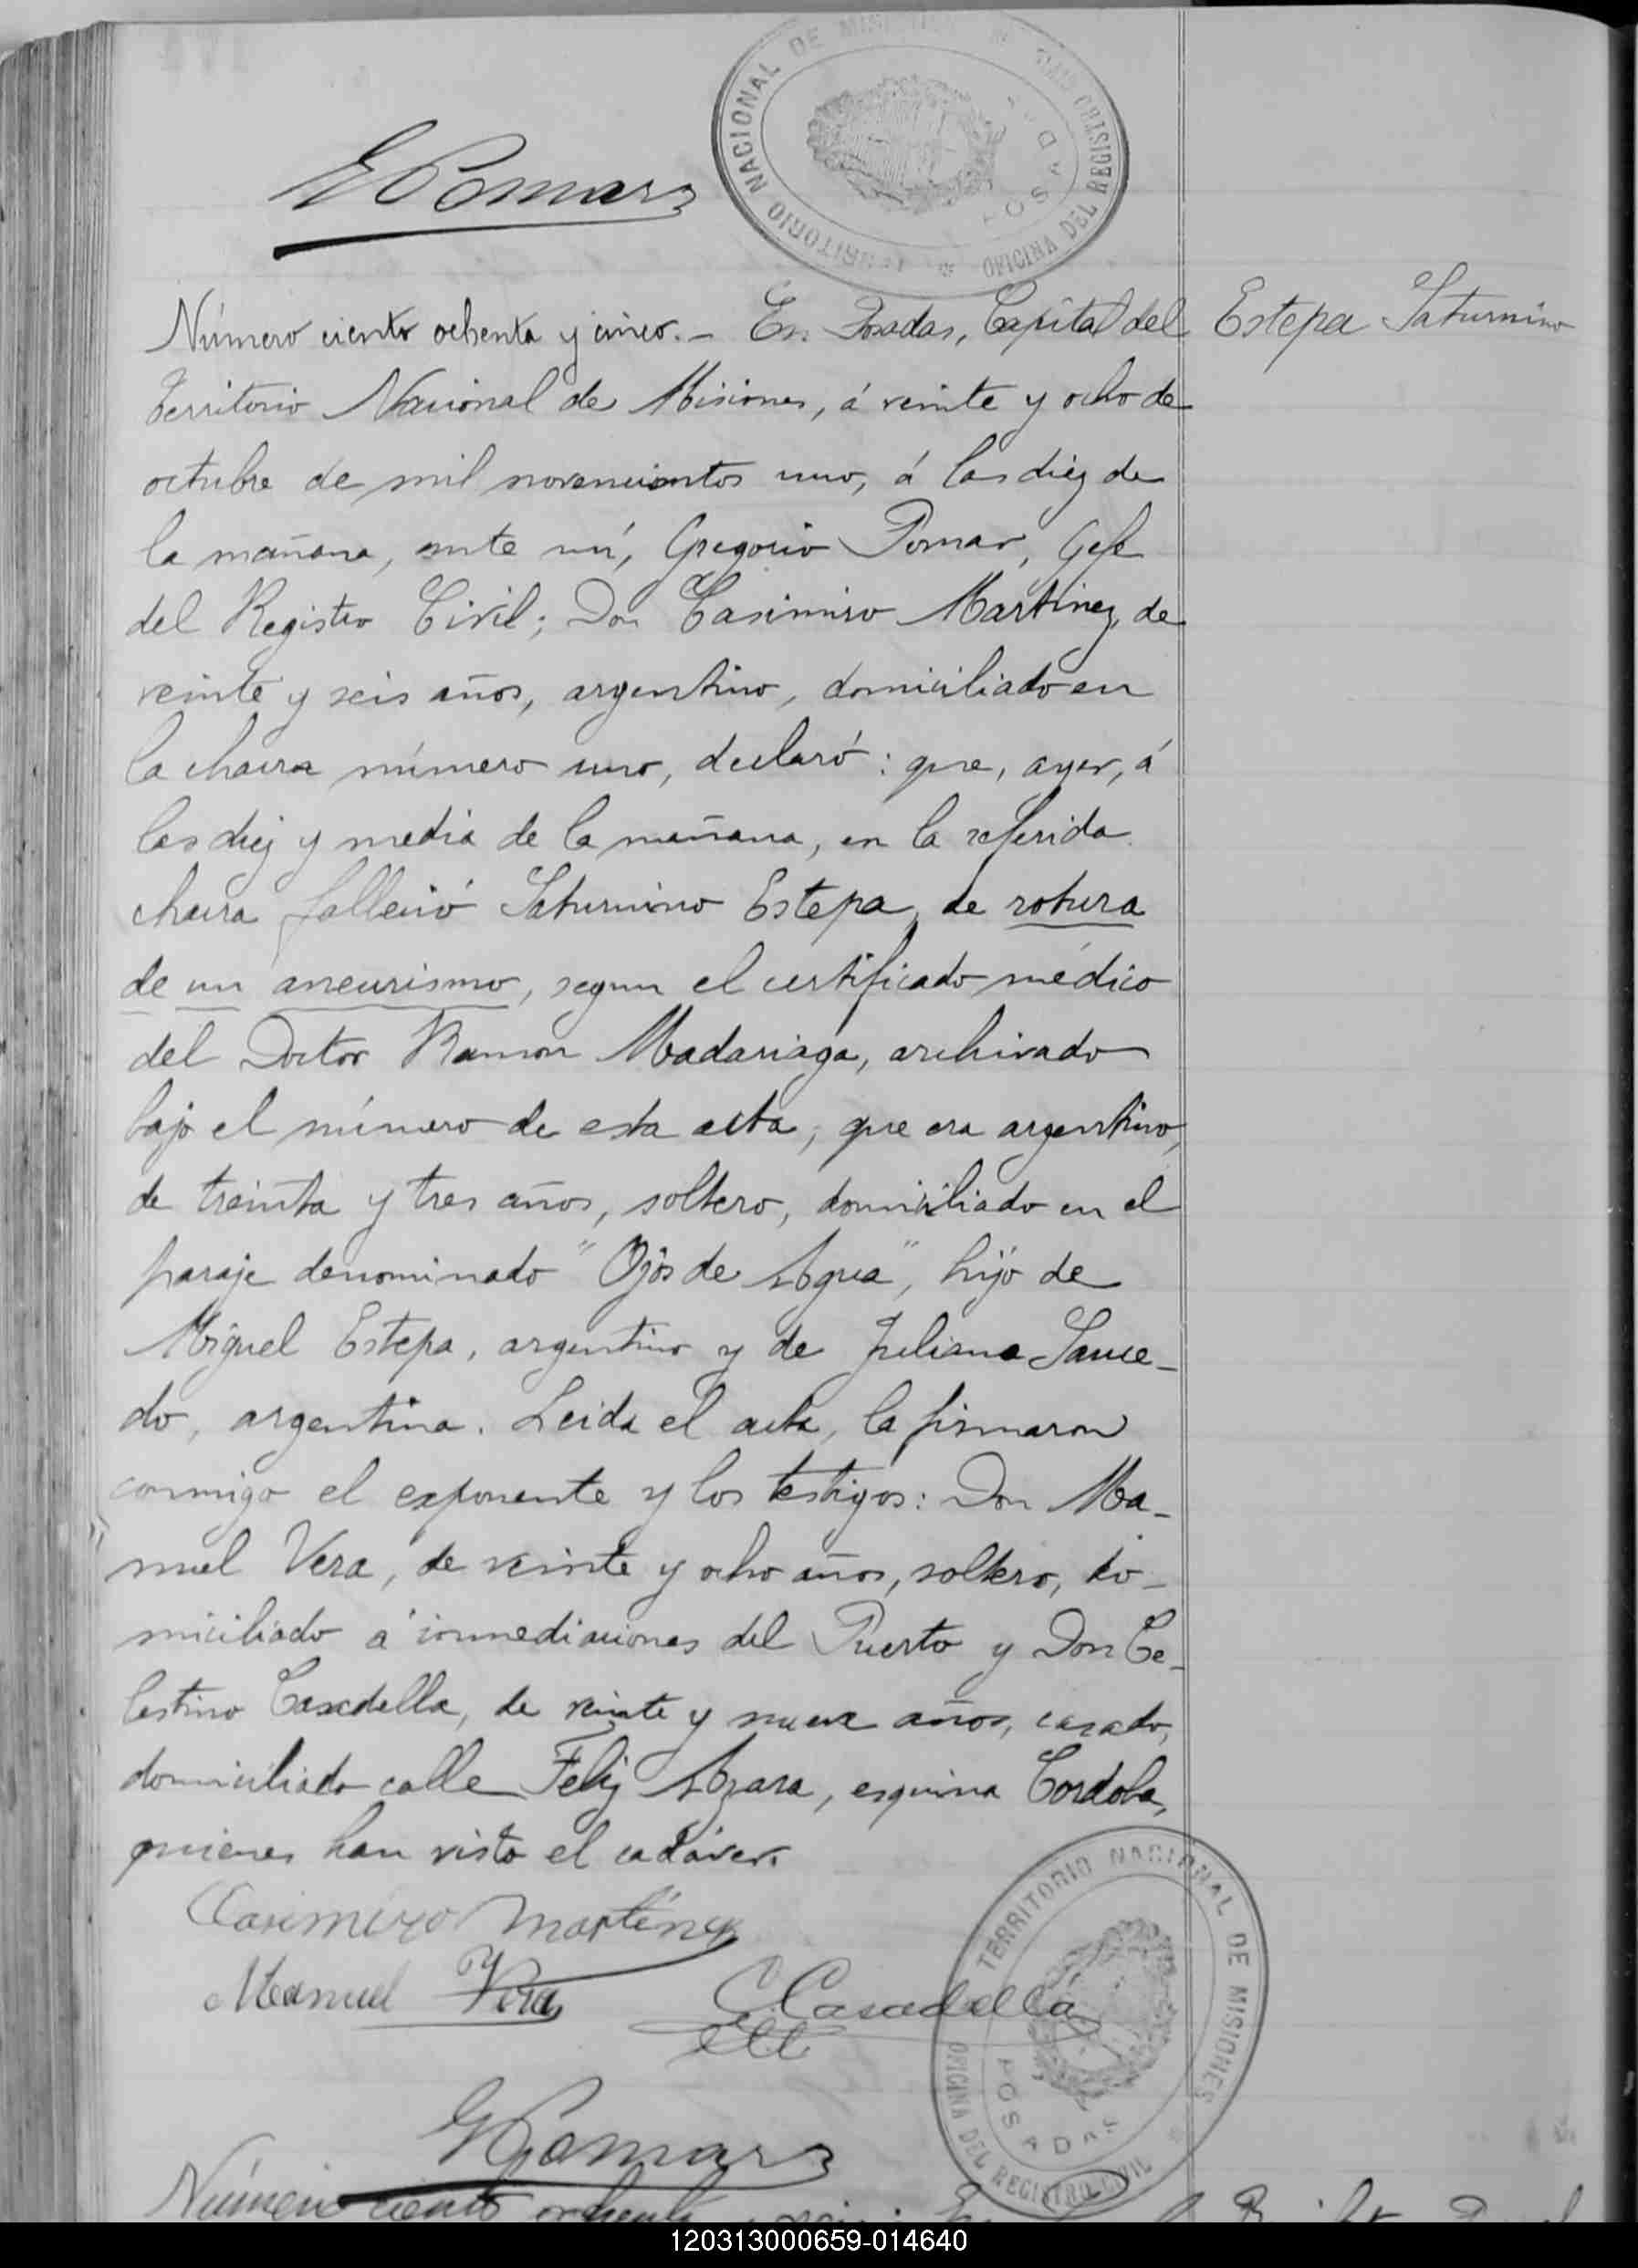 TERRITORIO NACIONAL DE MISIONES * OFICINA DEL REGISTRO CIVIL *
POSADAS
G Pomar
Número ciento ochenta y cinco.- En Posadas, Capital del
Estepa Saturnino
Territorio Nacional de Misiones, á veinte y ocho de
octubre de mil novecientos uno, á las diez de
la mañana, ante mí, Gregorio Pomar, Gefe
del Registro Civil; Don Casimiro Martinez, de
veinte y seis años, argentino, domiciliado en
la chacra número uno, declaró: que, ayer, á
las diez y media de la mañana, en la referida
chacra falleció Saturnino Estepa, de rotura
de un aneurismo, segun el certificado médico
del Doctor Ramon Madariaga, archivado
bajo el número de esta acta; que era argentino,
de treinta y tres años, soltero, domiciliado en el
paraje denominado "Ojos de Agua", hijo de
Miguel Estepa, argentino y de Juliana Sauce-
do, argentina. Leida el acta, la firmaron
conmigo el exponente y los testigos: Don Ma-
nuel Vera, de veinte y ocho años, soltero, do-
miciliado á inmediaciones del Puerto y Don Ce-
lestino Casadella, de veinte y nueve años, casado,
domiciliado calle Feliz Azara, esquina Cordoba,
quienes han visto el cadáver.
Casimiro Martínez
Manuel Vera
C. Casadella
TERRITORIO NACIONAL DE MISIONES
POSADAS
OFICINA DEL REGISTRO CIVIL
G Pomar
Número ciento ochenta
120313000659-014640